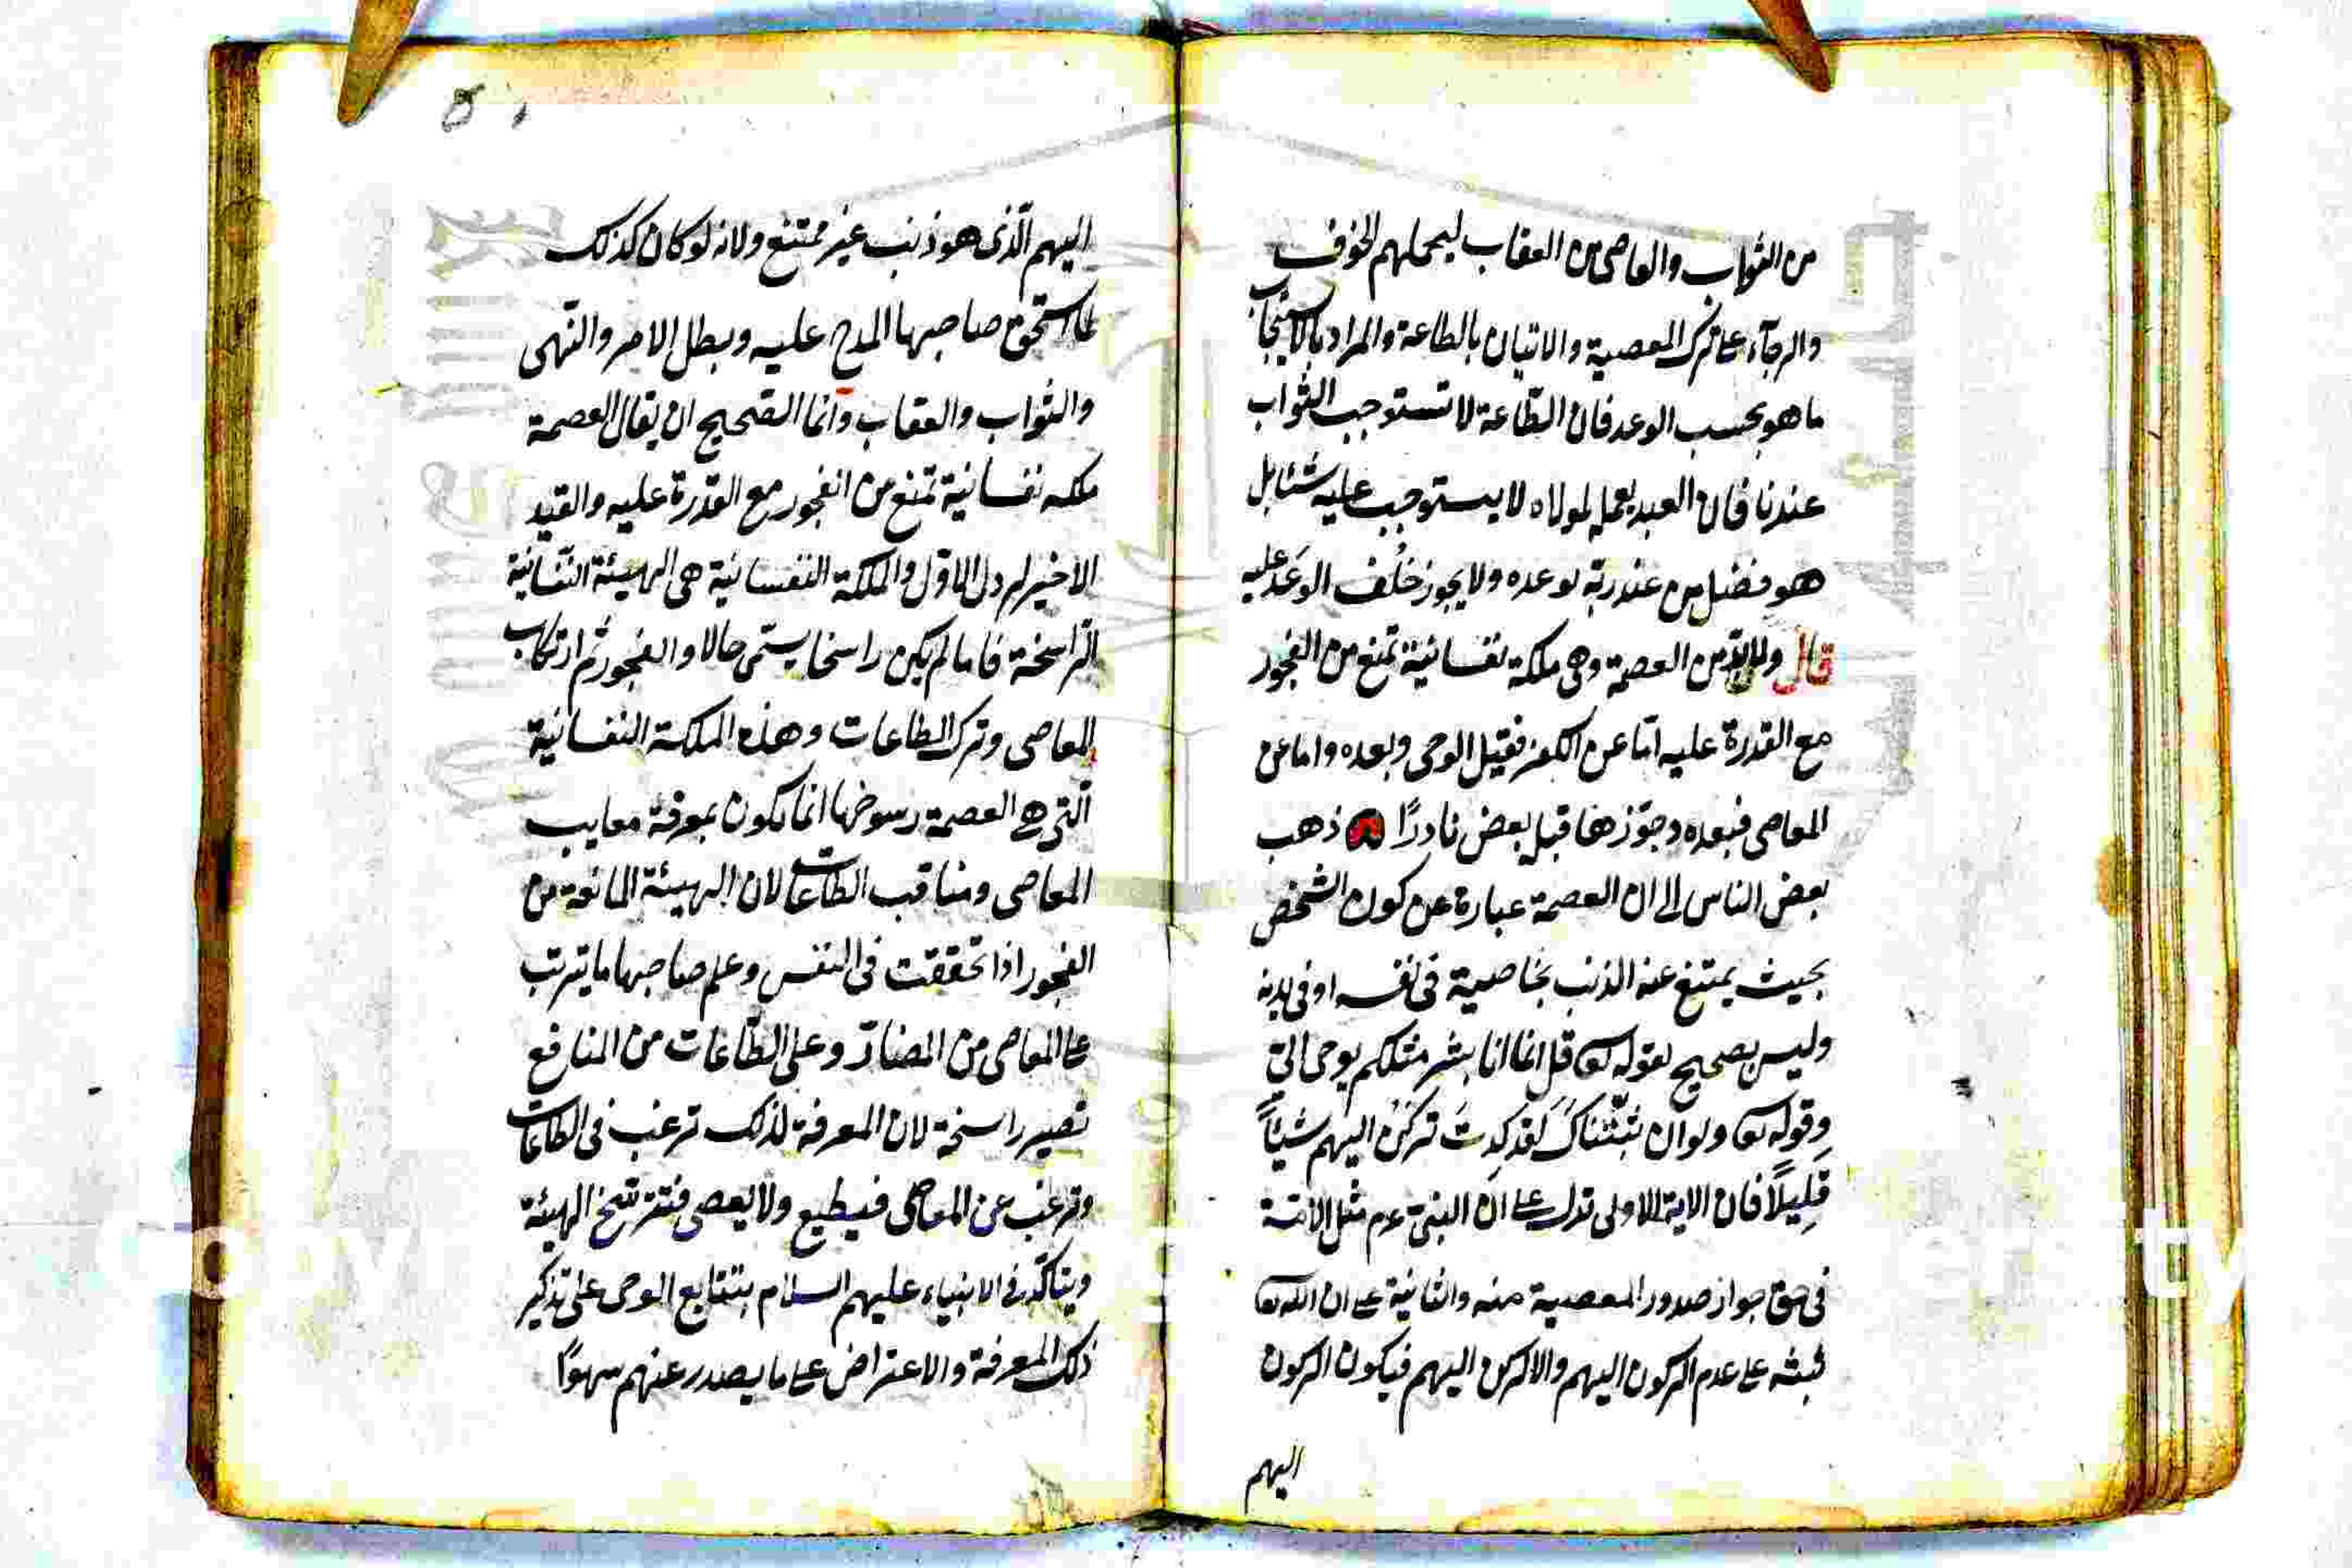 من الثواب والعاصى من العقاب ليحملهم الخوف
والرجآء على ترك المعصية والاتيان بالطاعة والمراد بالاستيجاب
ما هو بحسب الوعد فان الطّاعة لا تستوجب الثواب
عندنا فان العبد بعمله لمولاه لا يستوجب عليه شئا بل
هو فضل من عند ربّه لوعده ولا يجوز خُلف الوعد عليه
قال ولا بدّ من العصمة وهى ملكة نفسانية تمنع من الفجور
مع القدرة عليه امّا عن الكفر فقبل الوحى وبعده واما عن
المعاصى فبعده وجوّزها قبل بعض نادرًا ذهب
بعض الناس الى ان العصمة عبارة عن كون الشخص
بحيث يمتنع عنه الذنب بخاصية فى نفسه او فى بدنه
وليس بصحيح لقوله تعا قل انما انا بشر مثلكم يوحى الىّ
وقوله تعا ولولا ان ثبّتناك لقد كدت تركن اليهم شيئًا
قليلًا فان الاية الاولى تدل على انّ النبىّ عم مثل الامّة
فى حق جواز صدور المعصية منه والثانية على ان الله تعا
ثبته على عدم الركون اليهم والا لركن اليهم فيكون الركون
اليهم
اليهم الّذى هو ذنب غير ممتنع ولانه لو كان كذلك
لما استحق صاحبها المدح عليه وبطل الامر والنّهى
والثواب والعقاب وانما الصّحيح ان يقال العصمة
ملكه نفسانية تمنع من الفجور مع القدرة عليه والقيد
الاخير لم دل الاول والملكة النفسانية هى الهيئة النّفسانية
الرّاسخة فاما لم يكن راسخا يسمّى حالا والفجور ثم ارتكاب
المعاصى وترك الطاعات وهذه الملكة النفسانية
الّتى هى العصمة رسوخها انما يكون بمعرفة معايب
المعاصى ومناقب الطّاعات لان الهيئة المانعة من
الفجور اذا تحققت فى النفس وعلم صاحبها ما يترتب
على المعاصى من المضارّ وعلى الطّاعات من المنافع
تصير راسخة لان المعرفة لذلك ترغب فى الطاعات
وترغب عن المعاصى فيطيع ولا يعصى فتترسخ الهيئة
ويتاكّد فى الانبياء عليهم السلام بتتابع الوحى على تذكير
ذلك المعرفة والاعتراض على ما يصدر عنهم سهوًا